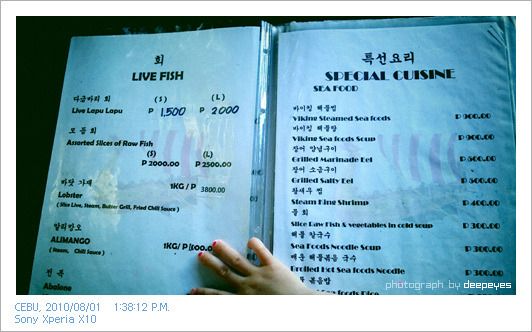 회
LIVE FISH
다금바리 회 (S) (L)
Live Lapu Lapu P 1,500 P 2000
모듬 회
Assorted Slices of Raw Fish
(S) (L)
P 2000.00 P 2500.00
바닷 가재
Lobster 1KG / P 3800.00
( Slice Live, Steam, Butter Grill, Fried Chili Sauce )
알리망오
ALIMANGO 1KG/ P 1600.00
( Steam, Chili Sauce )
전 복
Abalone
특선요리
SPECIAL CUISINE
SEA FOOD
바이킹 해물찜
Viking Steamed Sea foods P 900.00
바이킹 해물탕
Viking Sea foods Soup P 900.00
장어 양념구이
Grilled Marinade Eel P 500.00
장어 소금구이
Grilled Salty Eel P 500.00
왕새우 찜
Steam King Shrimp P 400.00
물 회
Slice Raw Fish & vegetables in cold soup P 300.00
해물 칼국수
Sea Foods Noodle Soup P 300.00
매운 해물볶음 국수
Broiled Hot Sea foods Noodle P 300.00
photograph by deepeyes
CEBU, 2010/08/01 1:38:12 P.M.
Sony Xperia X10